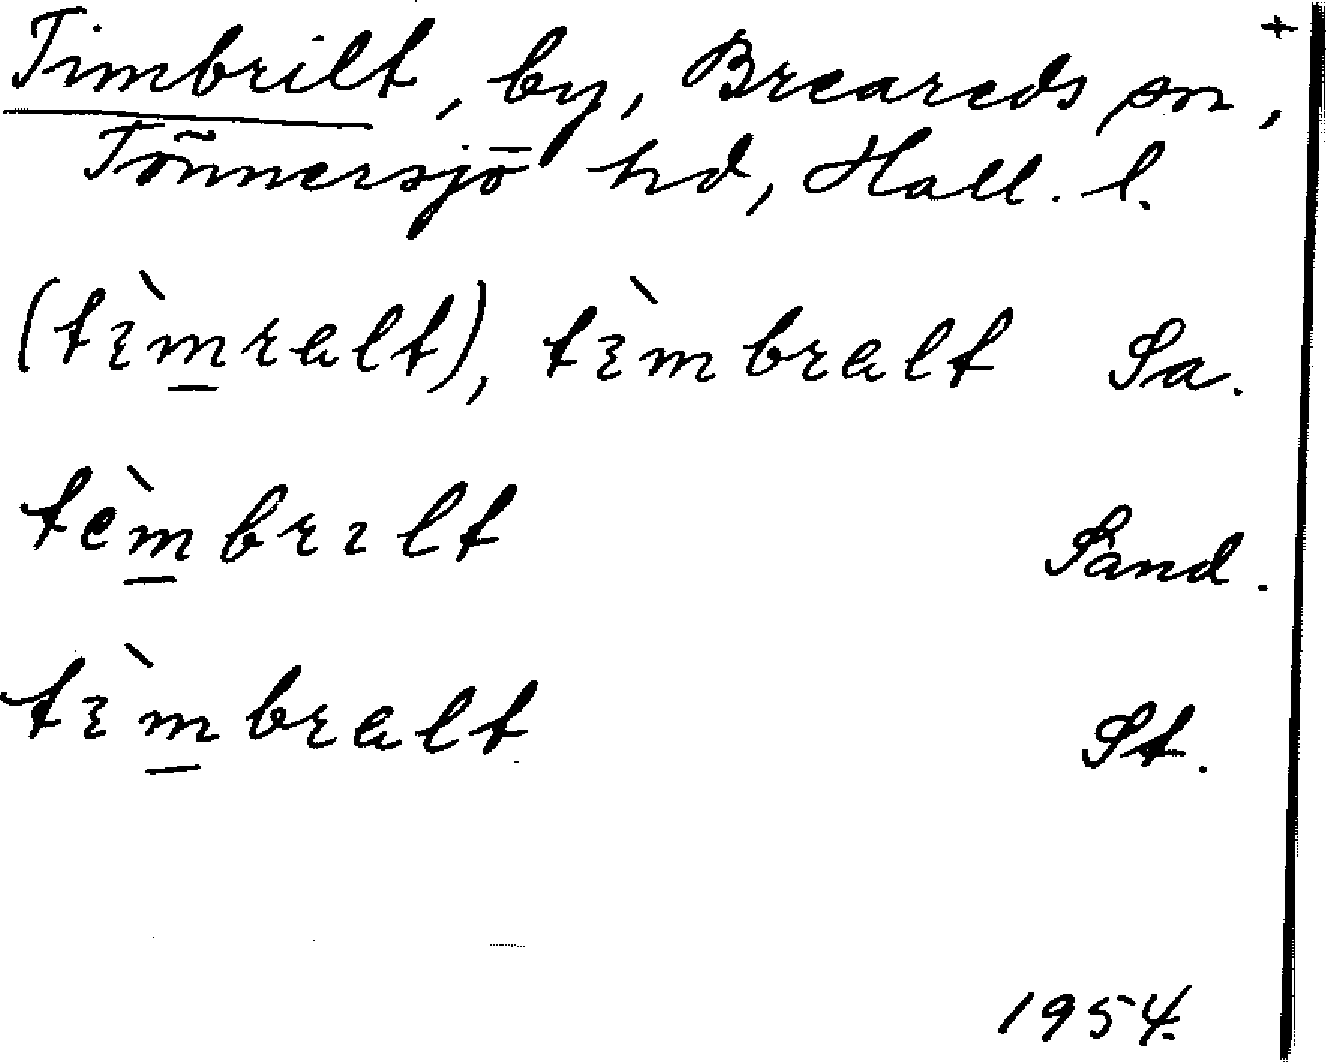 +
Timbrilt, by, Breareds sn,
Tönnersjö hd, Hall. l.
(tɩ̀m̲ralt), tɩ̀mbralt Sa.
tèm̲brɩlt Sand.
tɩ̀m̲bralt St.
1954.